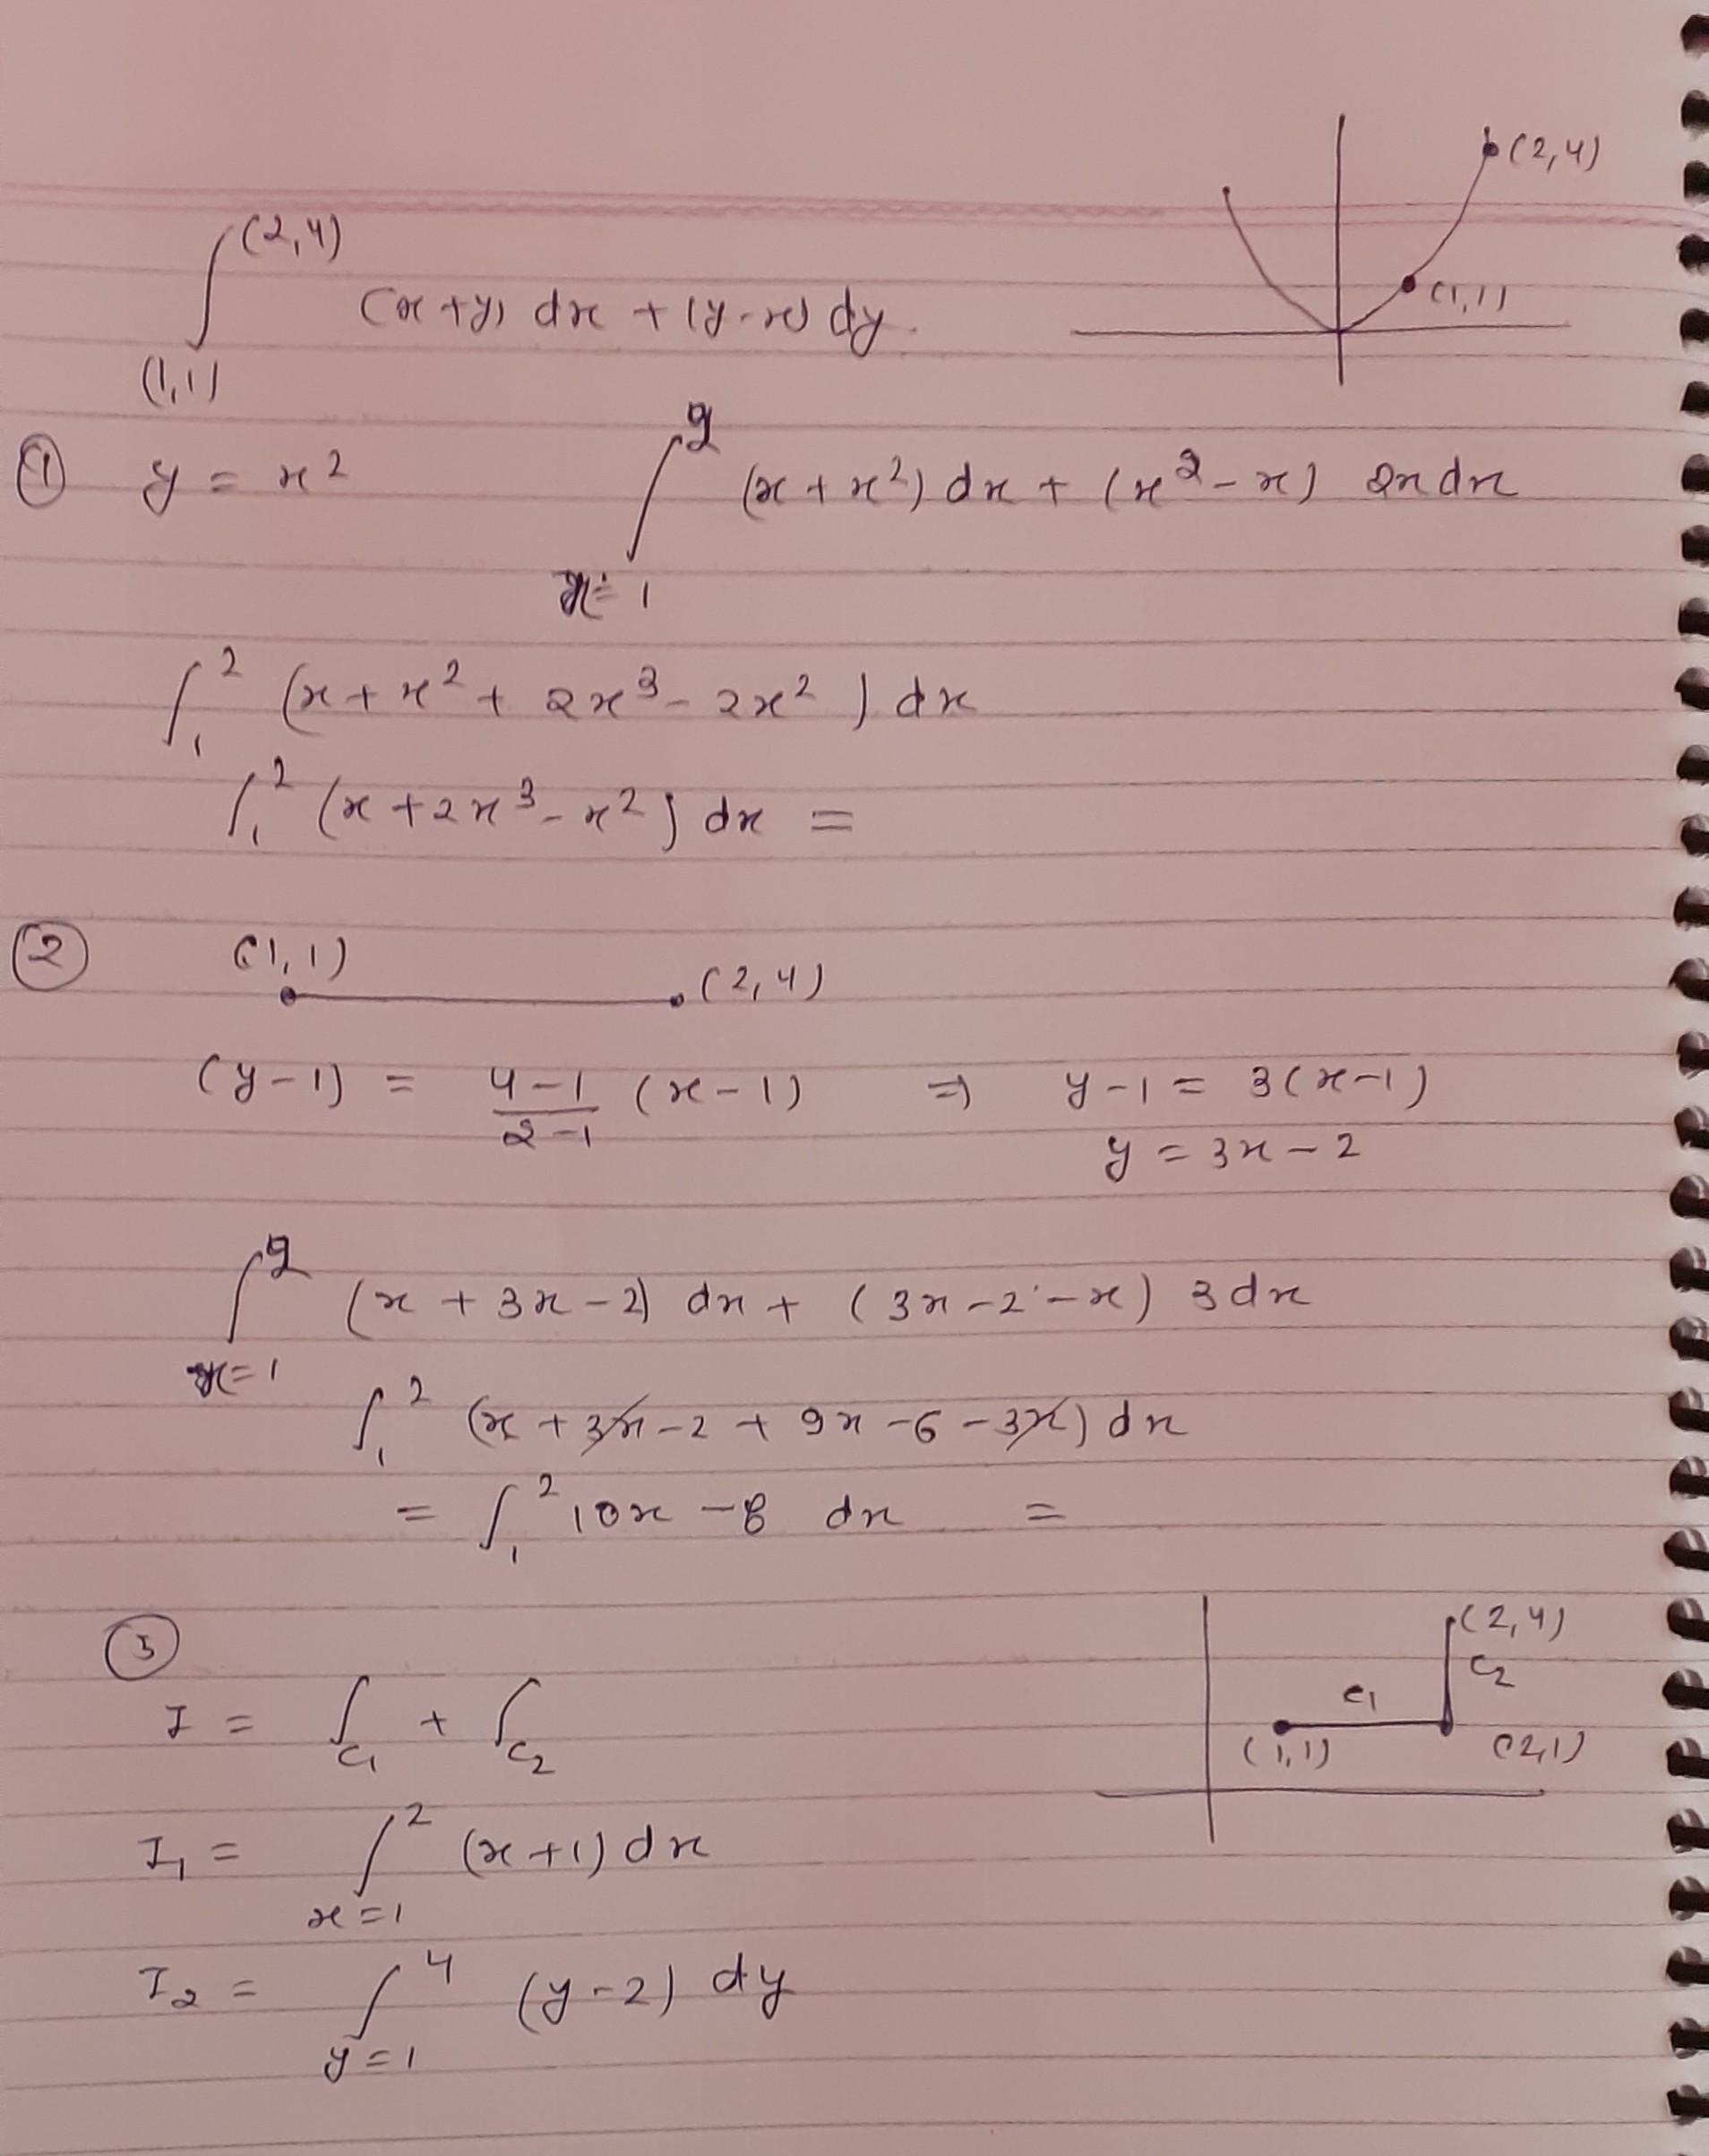 (2,4)
∫ (x+y) dx + (y-x) dy
(1,1)
(2,4)
(1,1)
① y = x² ∫ₓ₌₁² (x + x²) dx + (x² - x) 2x dx
∫₁² (x + x² + 2x³ - 2x²) dx
∫₁² (x + 2x³ - x²) dx =
② (1,1) (2,4)
(y-1) = (4-1)/(2-1) (x-1) ⇒ y-1 = 3(x-1)
y = 3x - 2
∫ₓ₌₁² (x + 3x - 2) dx + (3x - 2 - x) 3dx
∫₁² (x + 3x - 2 + 9x - 6 - 3x) dx
= ∫₁² 10x - 8 dx =
③
I = ∫c₁ + ∫c₂
(2,4)
c₂
c₁
(1,1) (2,1)
I₁ = ∫ₓ₌₁² (x+1) dx
I₂ = ∫y₌₁⁴ (y-2) dy